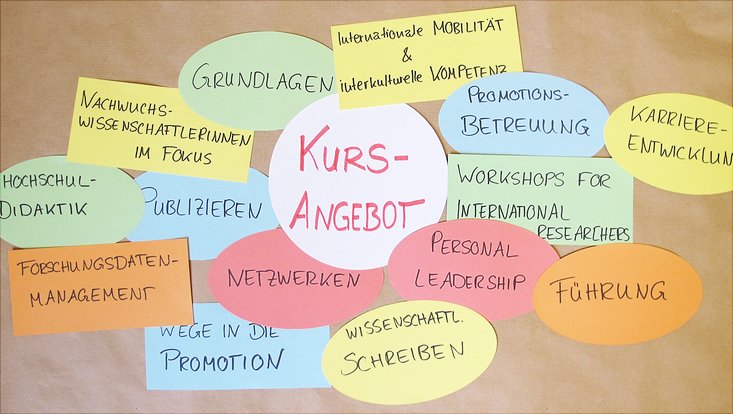 Internationale MOBILITÄT
&
interkulturelle KOMPETENZ
GRUNDLAGEN
NACHWUCHS-
WISSENSCHAFTLERINNEN
IM FOKUS
PROMOTIONS-
BETREUUNG
KARRIERE-
ENTWICKLUN
KURS-
ANGEBOT
HOCHSCHUL-
DIDAKTIK
PUBLIZIEREN
WORKSHOPS FOR
INTERNATIONAL
RESEARCHERS
FORSCHUNGSDATEN-
MANAGEMENT
NETZWERKEN
PERSONAL
LEADERSHIP
FÜHRUNG
WEGE IN DIE
PROMOTION
WISSENSCHAFTL.
SCHREIBEN